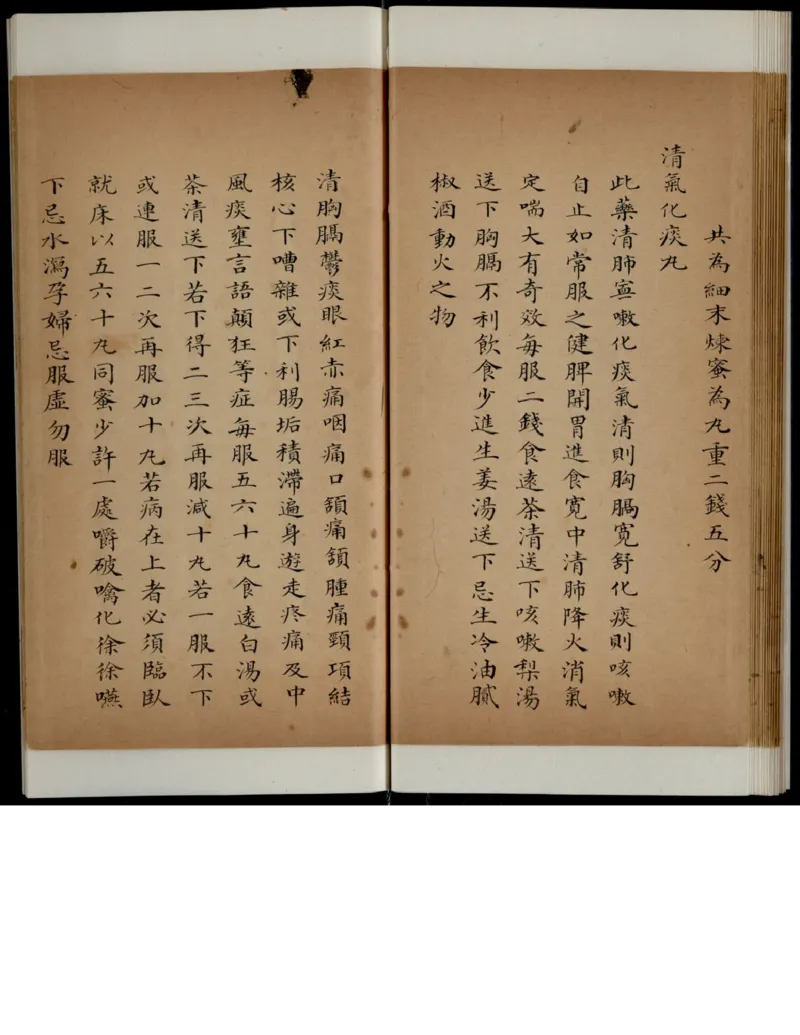 共為細末煉蜜為丸重二錢五分
清氣化痰丸
此藥清肺寧嗽化痰氣清則胸膈寬舒化痰則咳嗽
自止如常服之健脾開胃進食寬中清肺降火消氣
定喘大有奇效每服二錢食遠茶清送下咳嗽梨湯
送下胸膈不利飲食少進生姜湯送下忌生冷油膩
椒酒動火之物
清胸膈鬱痰眼紅赤痛咽痛口頷痛頷腫痛頸項結
核心下嘈雜或下利腸垢積滯遍身遊走疼痛及中
風痰壅言語顛狂等症每服五六十丸食遠白湯或
茶清送下若下得二三次再服減十丸若一服不下
或連服一二次再服加十丸若病在上者必須臨臥
就床以五六十丸同蜜少許一處嚼破噙化徐徐嚥
下忌水瀉孕婦忌服虛勿服